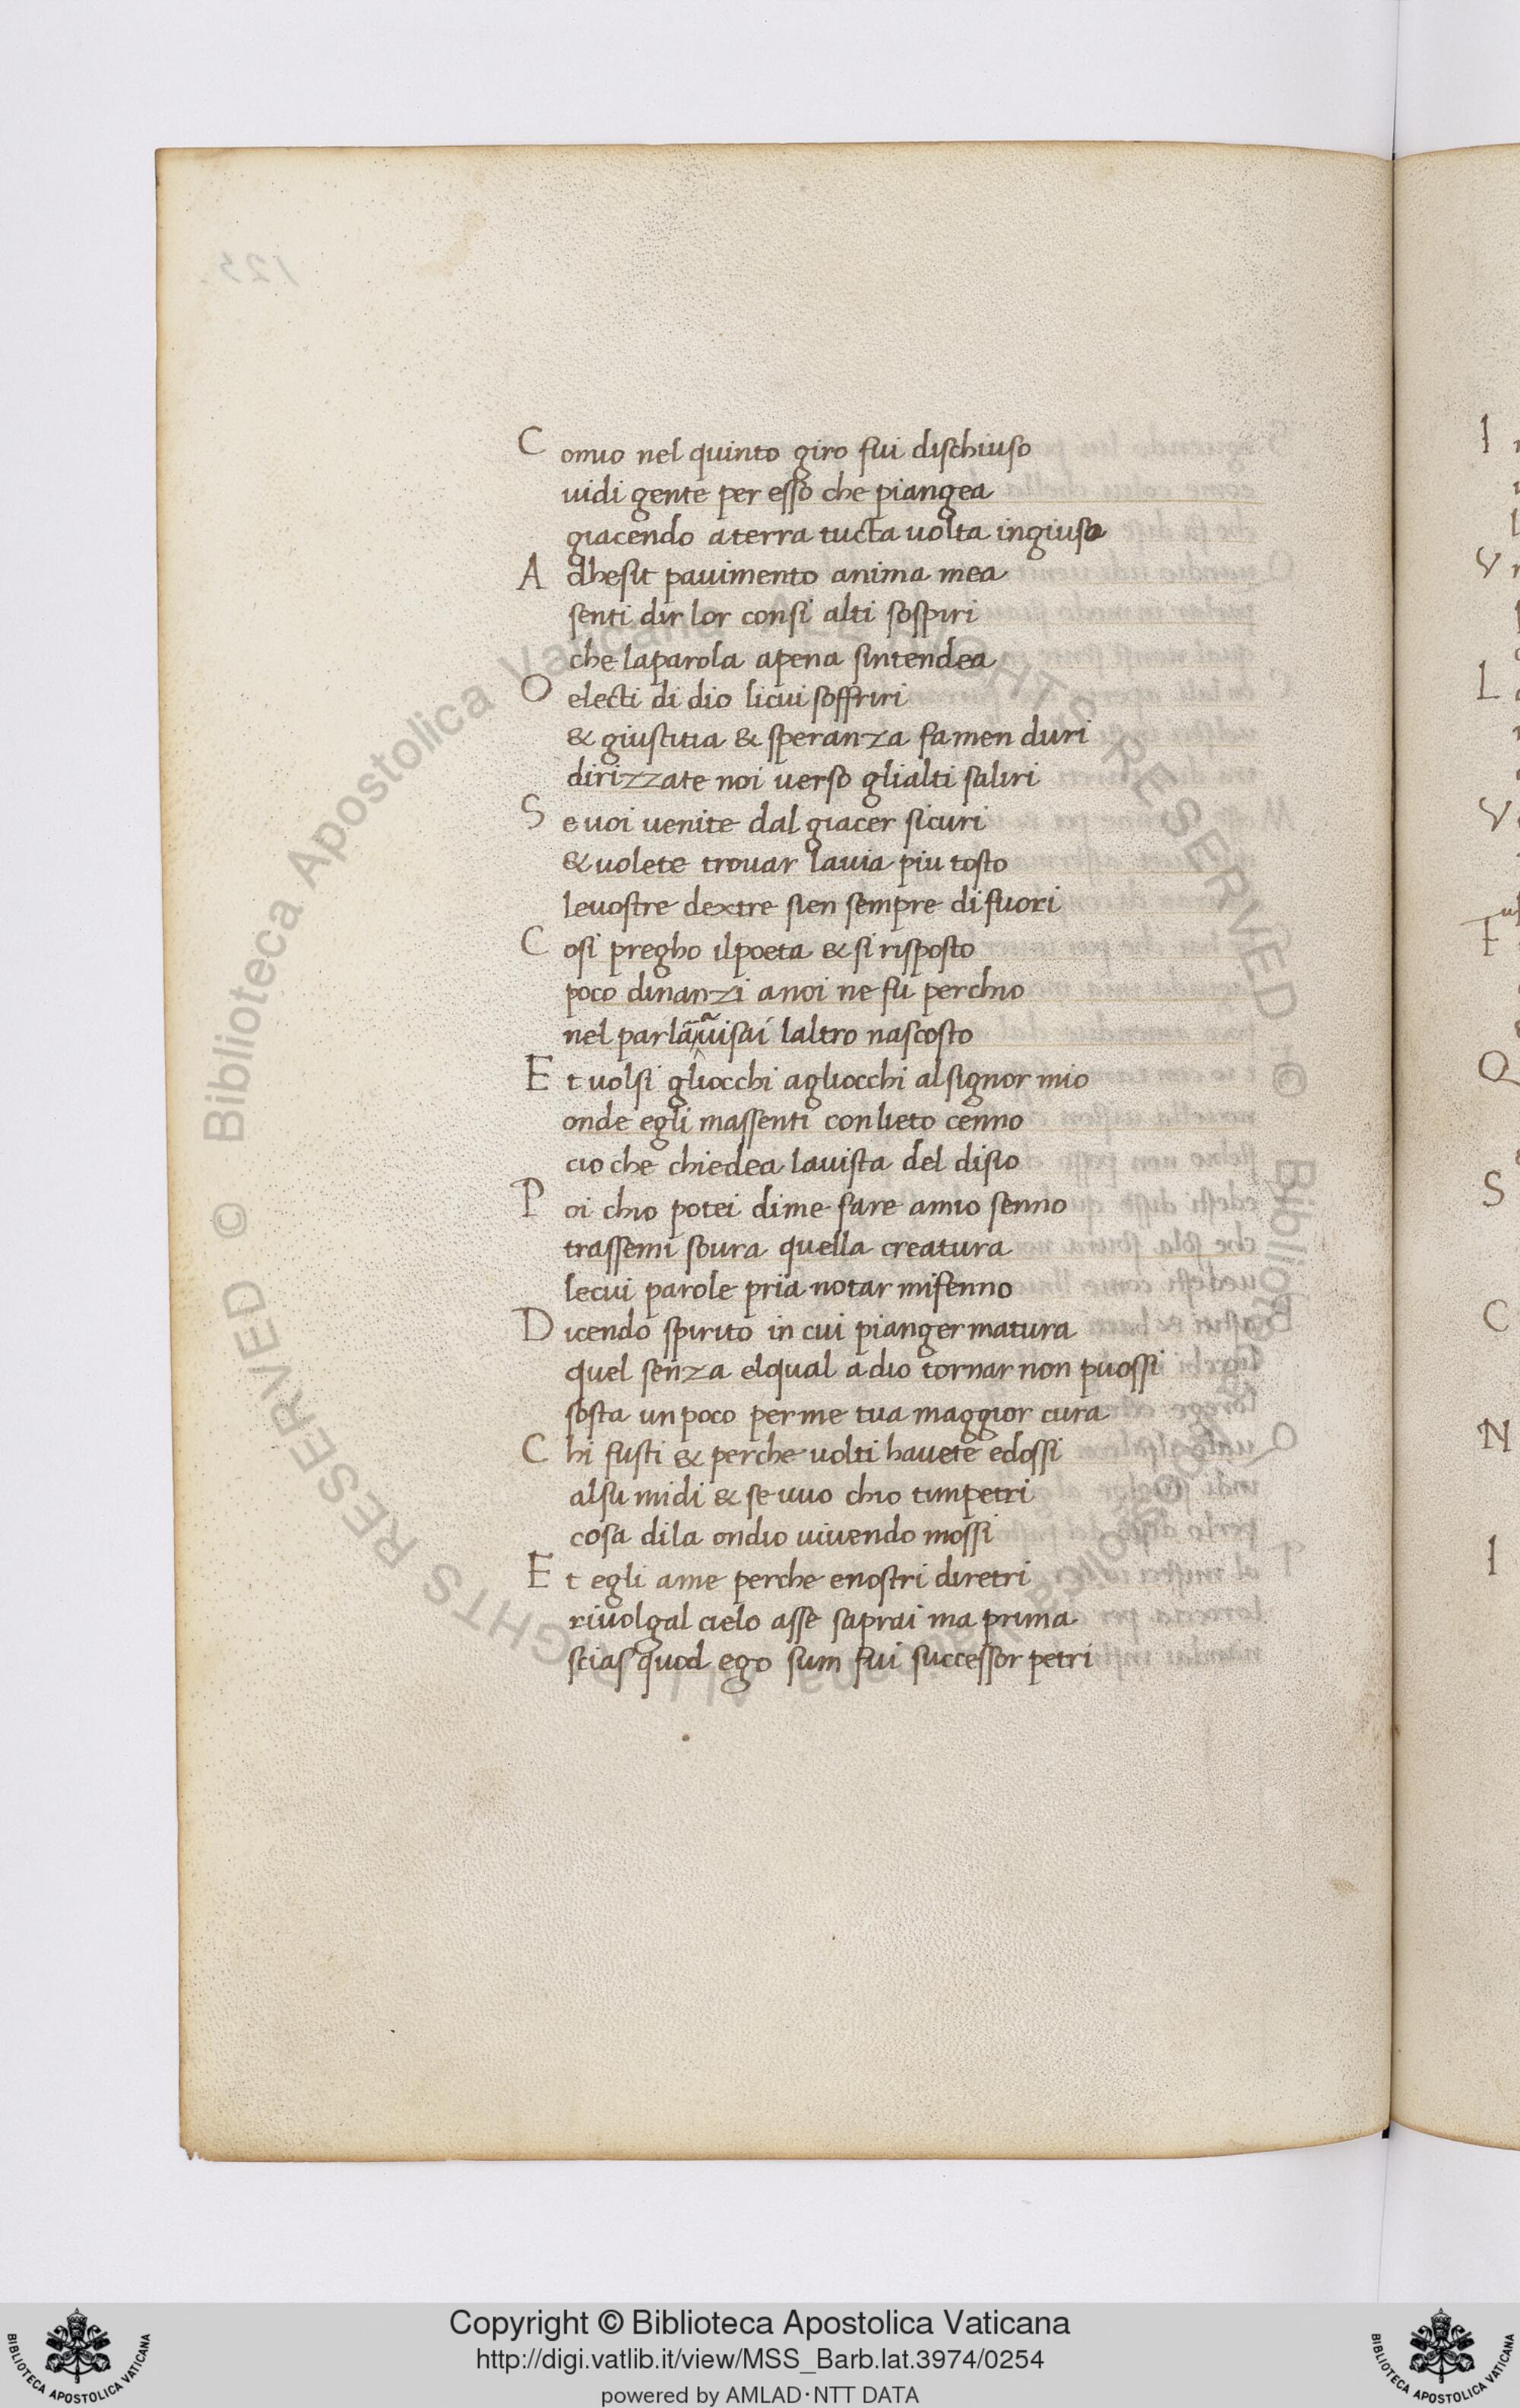 Comio nel quinto giro fui dischiuso
uidi gente per esso che piangea
giacendo aterra tucta uolta ingiuso
Adhesit pauimento anima mea
senti dir lor consi alti sospiri
che laparola apena sintendea
O electi di dio licui soffriri
& giustitia & speranza famen duri
dirizzate noi uerso glialti saliri
Se uoi uenite dal giacer sicuri
& uolete trouar lauia piu tosto
leuostre dextre sien sempre difuori
Cosi pregho ilpoeta & si risposto
poco dinanzi anoi ne fu perchio
nel parlāauisai laltro nascosto
Et uolsi gliocchi agliocchi alsignor mio
onde egli massenti conlieto cenno
cio che chiedea lauista del disio
Poi chio potei dime fare amio senno
trassemi soura quella creatura
lecui parole pria notar mifenno
Dicendo spirito in cui pianger matura
quel senza elqual adio tornar non puossi
sosta unpoco perme tua maggior cura
Chi fusti & perche uolti hauete edossi
alsu midi & se uuo chio timpetri
cosa dila ondio uiuendo mossi
Et egli ame perche enostri diretri
riuolgal cielo asse saprai ma prima
scias quod ego sum fui successor petri
Copyright © Biblioteca Apostolica Vaticana
http://digi.vatlib.it/view/MSS_Barb.lat.3974/0254
powered by AMLAD·NTT DATA